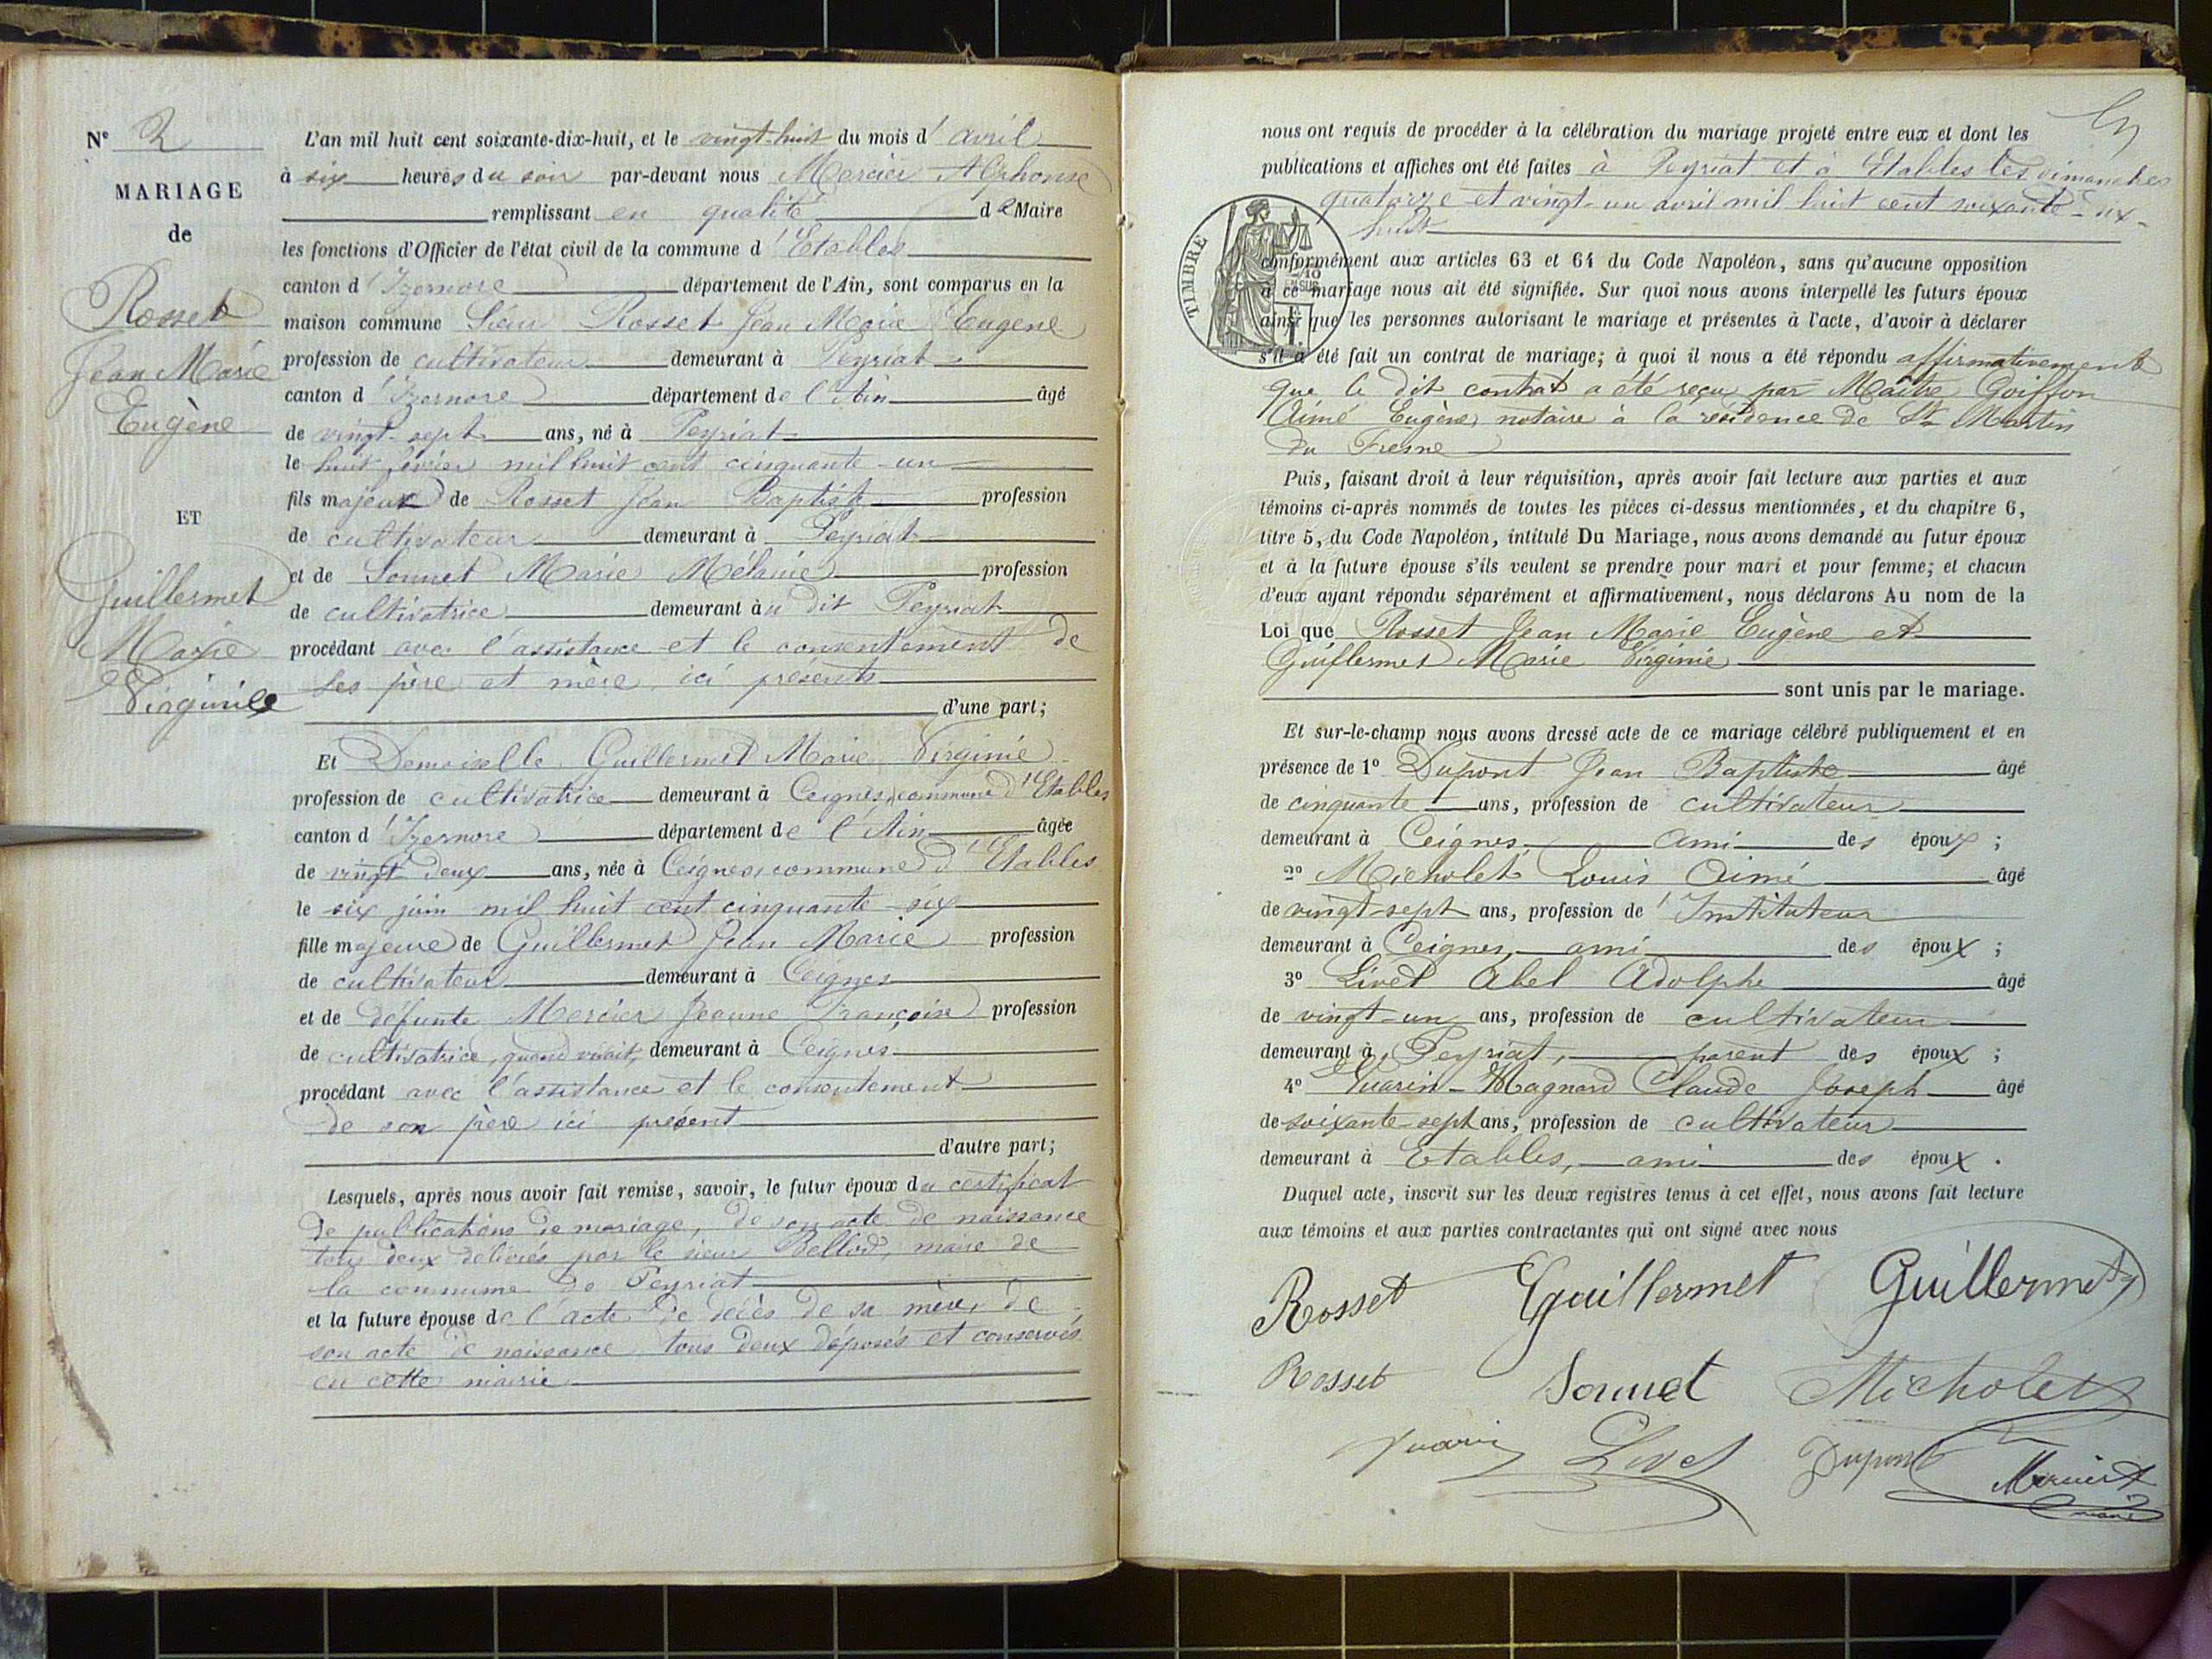 N° 2
MARIAGE
de
Rosset
Jean Marie
Eugène
ET
Guillermet
Marie
Virginie
L'an mil huit cent soixante-dix-huit, et le vingt-huit du mois d'avril
à six heures du soir par-devant nous Mercier Alphonse
remplissant en qualité de Maire
les fonctions d'Officier de l'état civil de la commune d'Etables
canton d'Izernore département de l'Ain, sont comparus en la
maison commune Sieur Rosset Jean Marie Eugène
profession de cultivateur demeurant à Peyriat
canton d'Izernore département de l'Ain âgé
de vingt-sept ans, né à Peyriat
le huit février mil huit cent cinquante-un
fils majeur de Rosset Jean Baptiste profession
de cultivateur demeurant à Peyriat
et de Sonnet Marie Mélanie profession
de cultivatrice demeurant au dit Peyriat
procédant avec l'assistance et le consentement de
ses père et mère ici présents
d'une part;
Et Demoiselle Guillermet Marie Virginie
profession de cultivatrice demeurant à Ceignes, commune d'Etables
canton d'Izernore département de l'Ain âgée
de vingt-deux ans, née à Ceignes, commune d'Etables
le six juin mil huit cent cinquante-six
fille majeure de Guillermet Jean Marie profession
de cultivateur demeurant à Ceignes
et de défunte Mercier Jeanne Françoise profession
de cultivatrice, quand vivait, demeurant à Ceignes
procédant avec l'assistance et le consentement
de son père ici présent
d'autre part;
Lesquels, après nous avoir fait remise, savoir, le futur époux du certificat
de publications de mariage, de son acte de naissance
tous deux délivrés par le sieur Bellod, maire de
la commune de Peyriat
et la future épouse de l'acte de décès de sa mère, de
son acte de naissance tous deux déposés et conservés
en cette mairie
nous ont requis de procéder à la célébration du mariage projeté entre eux et dont les
publications et affiches ont été faites à Peyriat et à Etables les dimanches
quatorze et vingt-un avril mil huit cent soixante-dix-
huit
TIMBRE
conformément aux articles 63 et 64 du Code Napoléon, sans qu'aucune opposition
à ce mariage nous ait été signifiée. Sur quoi nous avons interpellé les futurs époux
ainsi que les personnes autorisant le mariage et présentes à l'acte, d'avoir à déclarer
s'il a été fait un contrat de mariage; à quoi il nous a été répondu affirmativement
que le dit contrat a été reçu par Maître Goiffon
Aimé Eugène, notaire à la résidence de St Martin
du Fresne
Puis, faisant droit à leur réquisition, après avoir fait lecture aux parties et aux
témoins ci-après nommés de toutes les pièces ci-dessus mentionnées, et du chapitre 6,
titre 5, du Code Napoléon, intitulé Du Mariage, nous avons demandé au futur époux
et à la future épouse s'ils veulent se prendre pour mari et pour femme; et chacun
d'eux ayant répondu séparément et affirmativement, nous déclarons Au nom de la
Loi que Rosset Jean Marie Eugène et
Guillermet Marie Virginie
sont unis par le mariage.
Et sur-le-champ nous avons dressé acte de ce mariage célébré publiquement et en
présence de 1° Dupont Jean Baptiste âgé
de cinquante ans, profession de cultivateur
demeurant à Ceignes, ami des époux ;
2° Micholet Louis Aimé âgé
de vingt-sept ans, profession d'Instituteur
demeurant à Ceignes, ami des époux ;
3° Livet Abel Adolphe âgé
de vingt-un ans, profession de cultivateur
demeurant à Peyriat, parent des époux ;
4° Yuarin-Magnard Claude Joseph âgé
de soixante-sept ans, profession de cultivateur
demeurant à Etables, ami des époux .
Duquel acte, inscrit sur les deux registres tenus à cet effet, nous avons fait lecture
aux témoins et aux parties contractantes qui ont signé avec nous
Rosset Guillermet Guillermet
Rosset Sonnet Micholet
Yuarin Livet Dupont Mercier A
maire